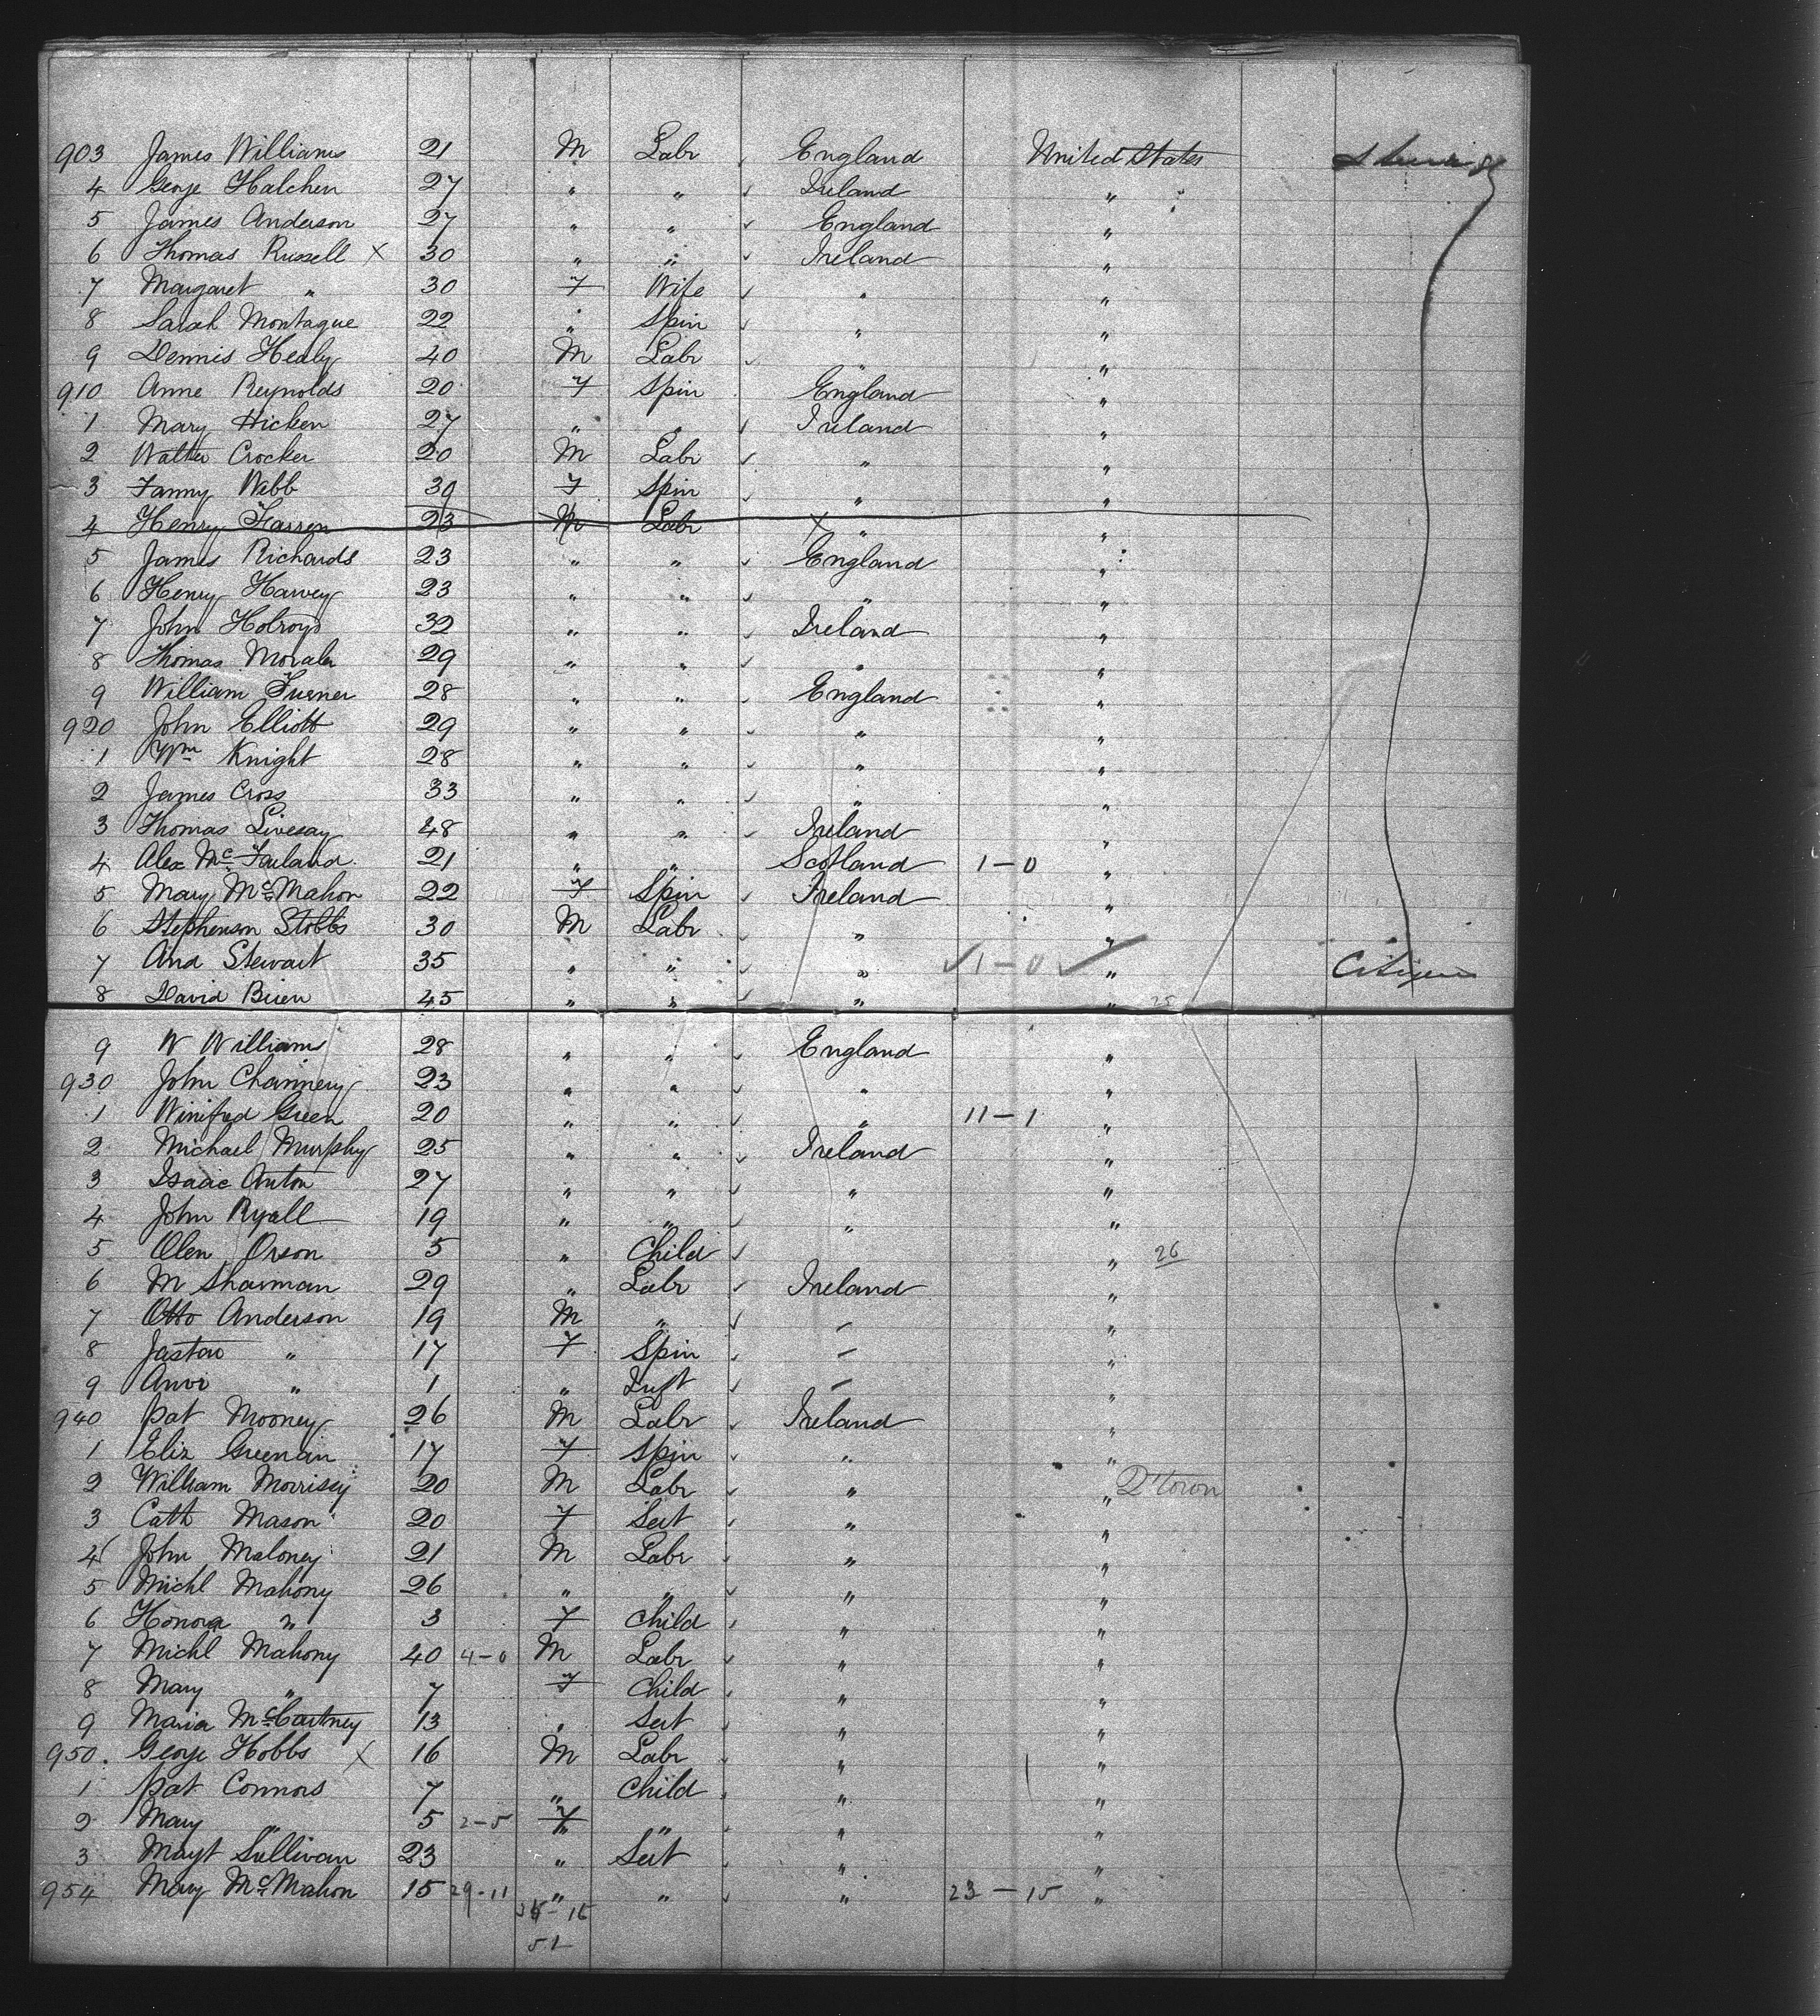 903 James Williams 21 M Labr England United States
4 George Halchen 27 " " Ireland "
5 James Anderson 27 " " England "
6 Thomas Russell X 30 " " Ireland "
7 Margaret " 30 F Wife " "
8 Sarah Montague 22 " Spin " "
9 Dennis Healy 40 M Labr " "
910 Anne Reynolds 20 F Spin England "
1 Mary Hicken 27 " " Ireland "
2 Walter Crocker 20 M Labr " "
3 Fanny Webb 30 F Spin " "
4 Henry Farren 23 M Labr X " "
5 James Richards 23 " " England "
6 Henry Harvey 23 " " " "
7 John Holroyd 32 " " Ireland "
8 Thomas 29 " " " "
9 William Turner 28 " " England "
920 John Elliott 29 " " " "
1 Wm Knight 28 " " " "
2 James Cross 33 " " " "
3 Thomas Livesay 48 " " Ireland "
4 Alex McFarland 21 " " Scotland 1-0 "
5 Mary McMahon 22 F Spin Ireland "
6 Stephenson Stobbs 30 M Labr " "
7 And Stewart 35 " " " 1-0 " Citizens
8 David Brien 45 " " " " 25
9 W Williams 28 " " England "
930 John Channery 23 " " " "
1 Winifred Green 20 " " " 11-1 "
2 Michael Murphy 25 " " Ireland "
3 Isaac Anton 27 " " " "
4 John Ryall 19 " " " "
5 Olen Orson 5 " Child " 26
6 M Sharman 29 " Labr Ireland "
7 Otto Anderson 19 M " - "
8 " 17 F Spin - "
9 " 1 " Inft - "
940 Pat Mooney 26 M Labr Ireland "
1 Eliz Greenan 17 F Spin " "
2 William Morrisey 20 M Labr " " Q'town
3 Cath Mason 20 F Sert " "
4 John Maloney 21 M Labr " "
5 Michl Mahony 26 " " " "
6 Honora " 3 F Child " "
7 Michl Mahony 40 4-0 M Labr " "
8 Mary " 7 F Child " "
9 Maria McCartney 13 " Sert " "
950 George Hobbs X 16 M Labr " "
1 Pat Connors 7 " Child " "
2 Mary " 5 2-5 F " " "
3 Mayt Sullivan 23 " Sert " "
954 Mary McMahon 15 29-11 " " " 23-15 "
51